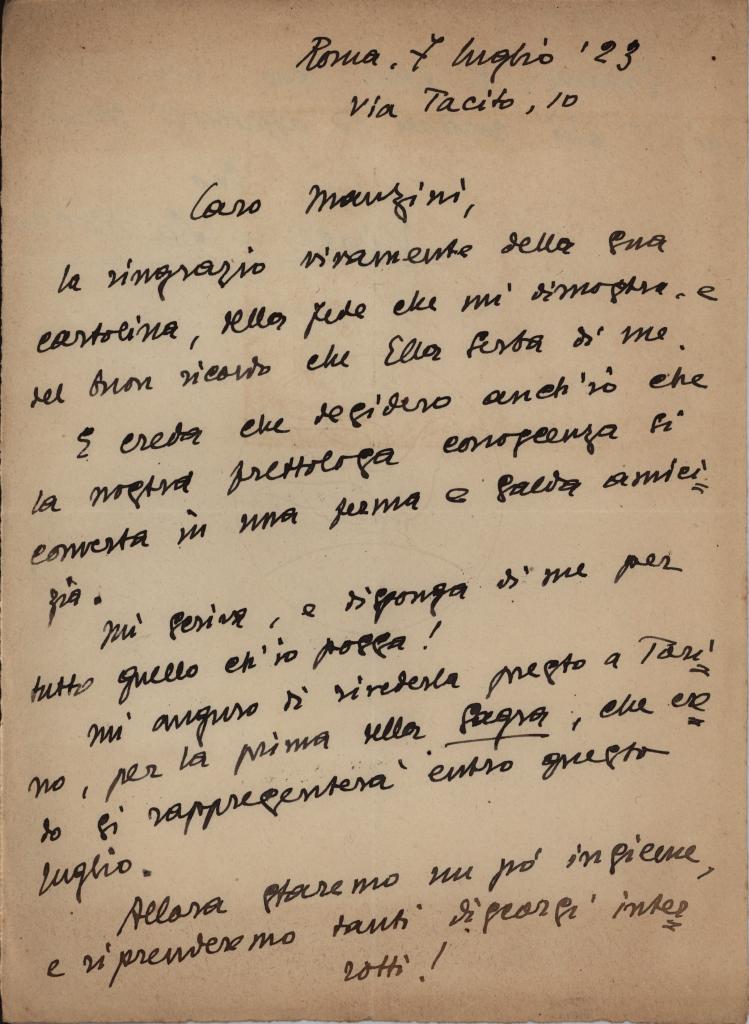 Roma. 7 luglio '23
Via Tacito, 10
Caro Manzini,
la ringrazio vivamente della sua
cartolina, della fede che mi dimostra. e
del buon ricordo che Ella serba di me.
E creda che desidero anch'io che
la nostra frettolosa conoscenza si
converta in una ferma e salda amici=
zia.
Mi scriva, e disponga di me per
tutto quello ch'io possa!
Mi auguro di rivederla presto a Tori=
no, per la prima della Sagra, che cre=
do si rappresenterà entro questo
luglio.
Allora staremo un pó insieme,
e riprenderemo tanti discorsi inter=
rotti!